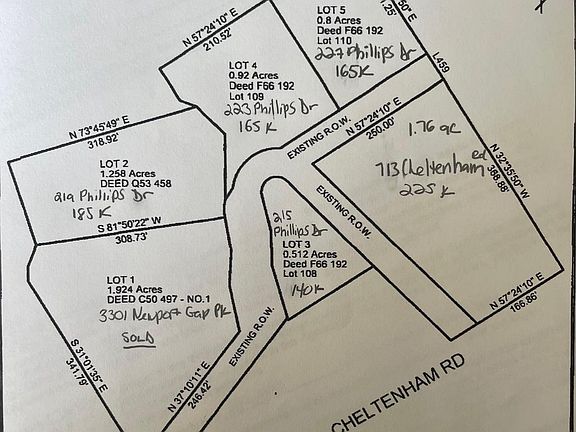 LOT 5
0.8 Acres
Deed F66 192
Lot 110
227 Phillips Dr
165K
50" E
1.25'
L459
N 57°24'10" E
210.52'
LOT 4
0.92 Acres
Deed F66 192
Lot 109
223 Phillips Dr
165 K
EXISTING R.O.W.
N 57°24'10" E
250.00'
1.76 ac
713 Cheltenham rd
225 K
N 32°35'50" W
388.88'
N 73°45'49" E
318.92'
LOT 2
1.258 Acres
DEED Q53 458
219 Phillips Dr
185 K
S 81°50'22" W
308.73'
EXISTING R.O.W.
215
Phillips Dr
LOT 3
0.512 Acres
Deed F66 192
Lot 108
140K
LOT 1
1.924 Acres
DEED C50 497 - NO.1
3301 Newport Gap Pk
SOLD
S 31°01'35" E
341.79'
N 37°10'11" E
246.42'
EXISTING R.O.W.
N 57°24'10" E
166.86'
CHELTENHAM RD